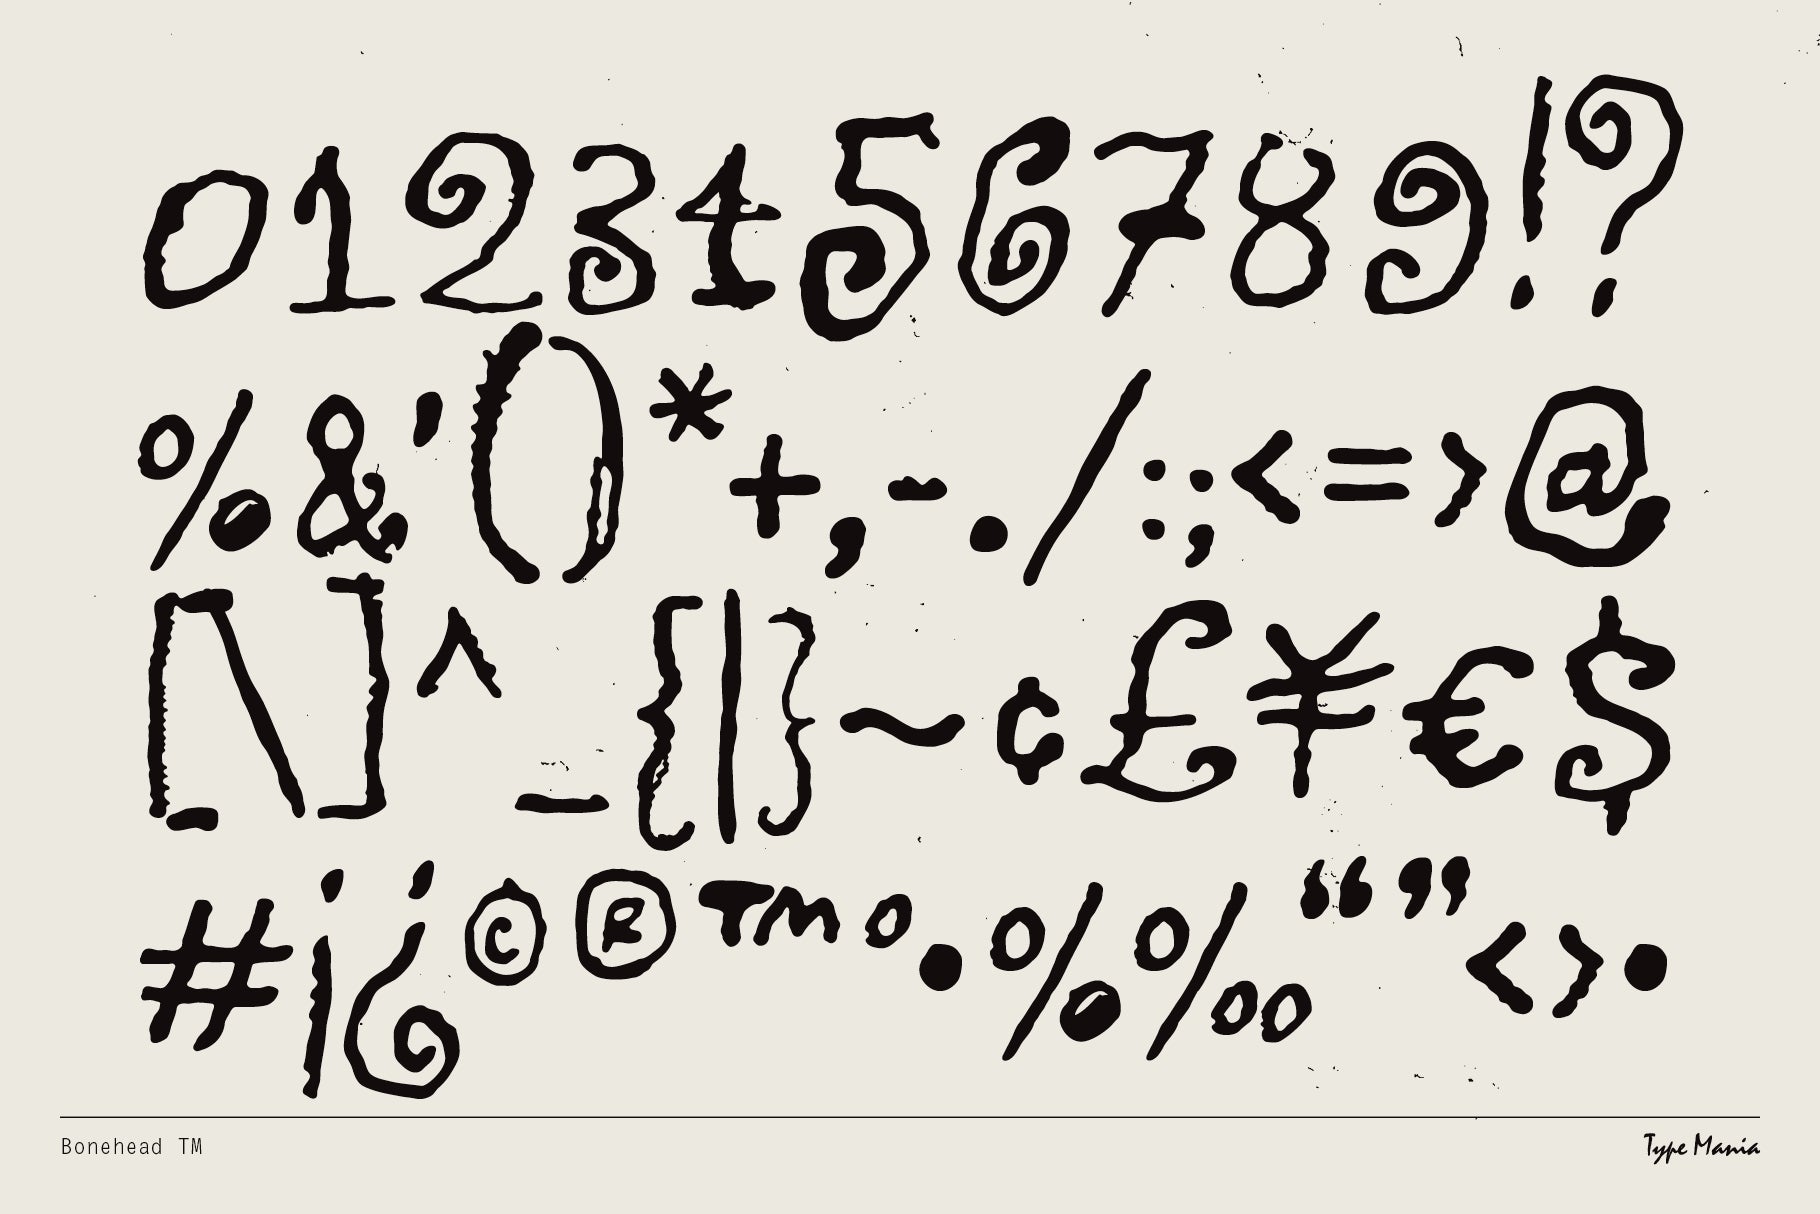 0123456789!?
%&'()*+,-./:;<=>@
[\]^_{|}~¢£¥€$
#¡¿©®™°•%‰“”‹›•
Bonehead TM
Type Mania